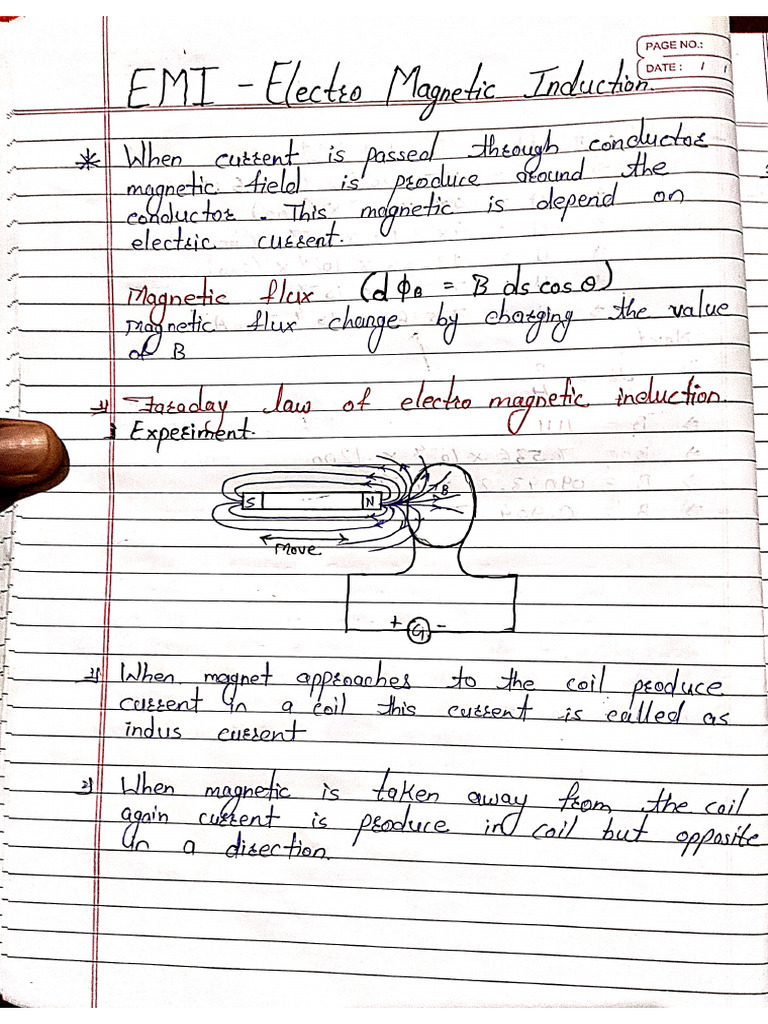 PAGE NO.:
DATE: / /
EMI - Electro Magnetic Induction.
* When current is passed through conductor
magnetic field is produce around the
conductor. This magnetic is depend on
electric current.
Magnetic flux (dΦB = B ds cos θ)
Magnetic flux change by changing the value
of B
1) Faraday law of electro magnetic induction.
Experiment.
S N B
Move
+ G -
1) When magnet approaches to the coil produce
current in a coil this current is called as
indus current
2) When magnetic is taken away from the coil
again current is produce in coil but opposite
in a direction.